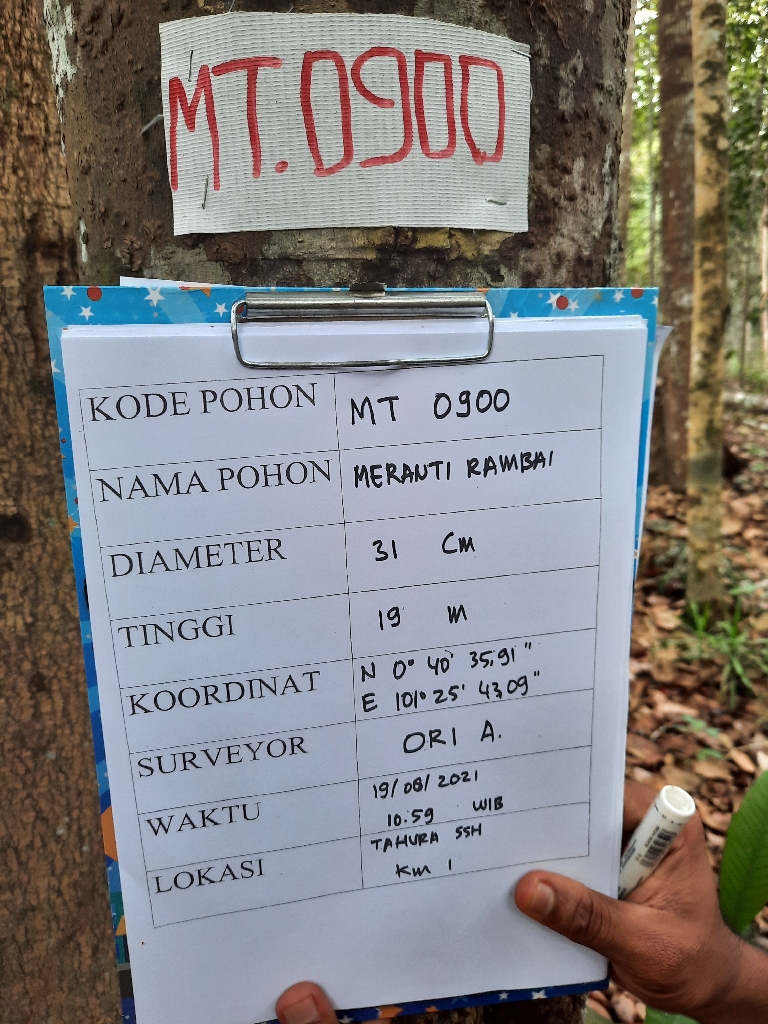 MT.0900
KODE POHON MT 0900
NAMA POHON MERANTI RAMBAI
DIAMETER 31 Cm
TINGGI 19 m
KOORDINAT N 0° 40' 35,91"
E 101° 25' 43,09"
SURVEYOR ORI A.
WAKTU 19/08/2021
10.59 WIB
LOKASI TAHURA SSH
Km 1